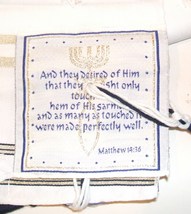 And they desired of Him
that they ght only
touc
hem of His garme
and as many as touched it
were made perfectly well.
Matthew 14:36